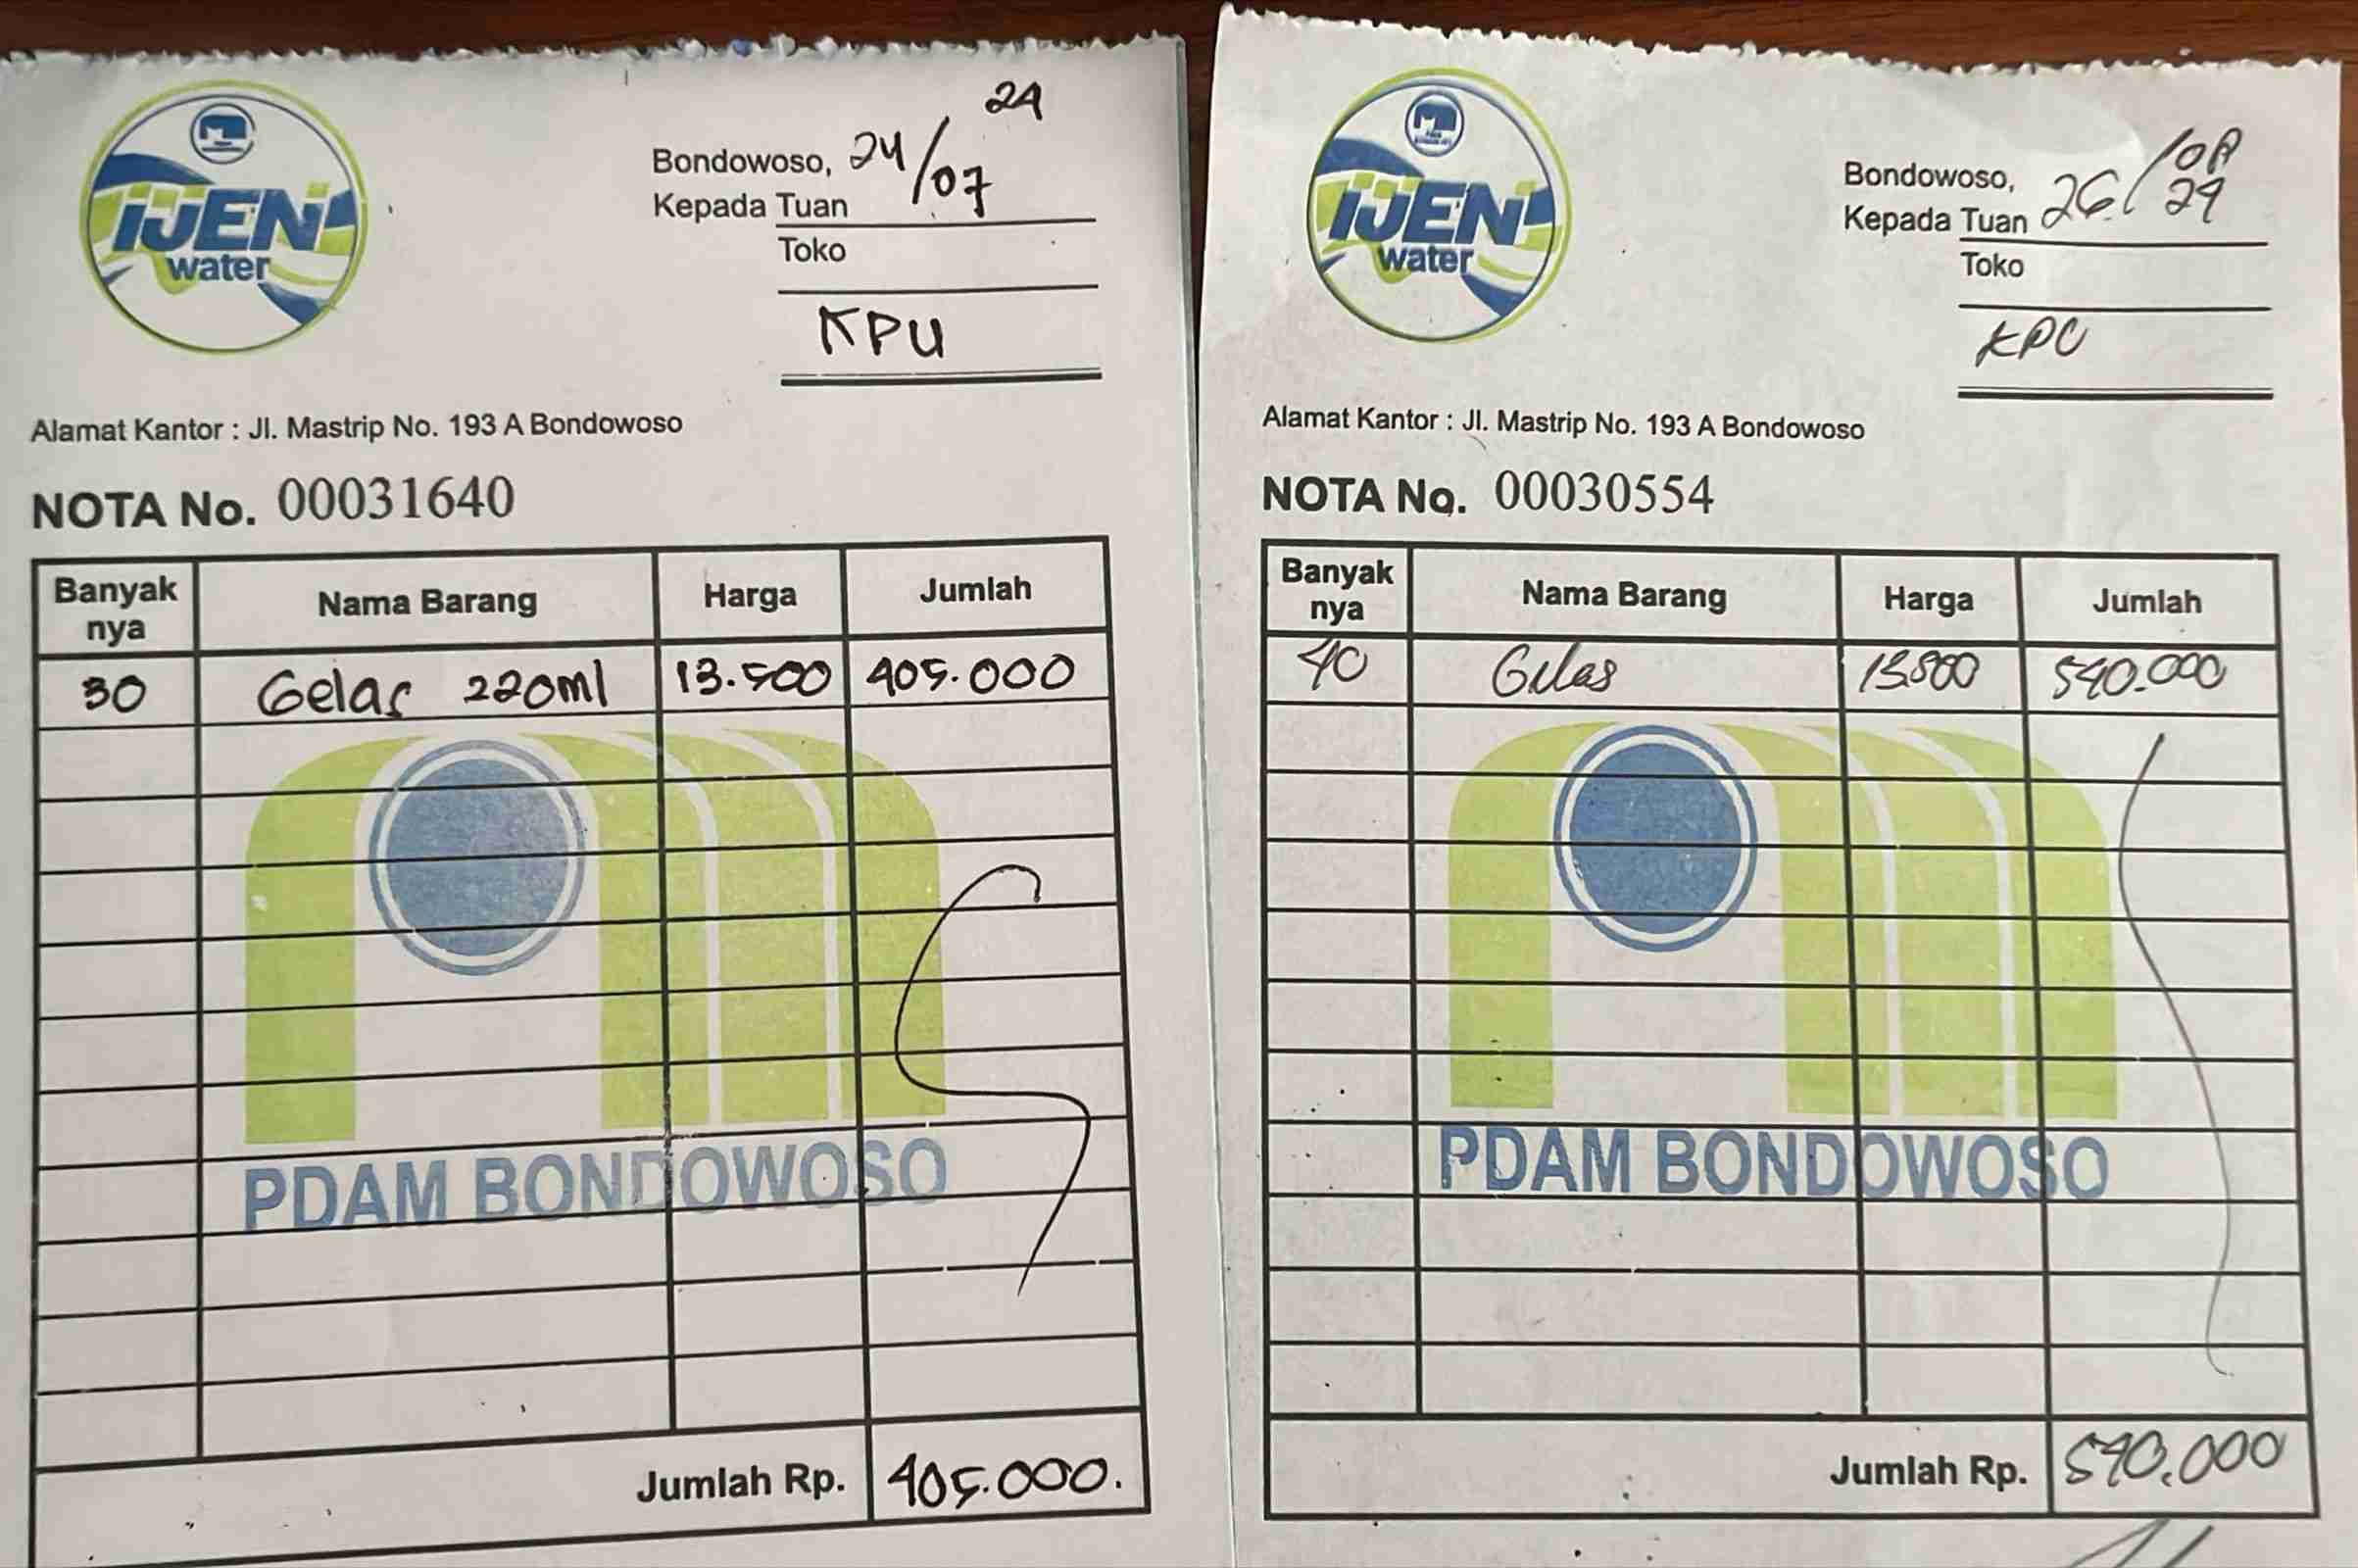 IJEN
water
24
Bondowoso, 24/07
Kepada Tuan
Toko
KPU
Alamat Kantor : Jl. Mastrip No. 193 A Bondowoso
NOTA No. 00031640
Banyak nya Nama Barang Harga Jumlah
30 Gelas 220ml 13.500 405.000
PDAM BONDOWOSO
Jumlah Rp. 405.000.
IJEN
water
Bondowoso, 26/08
Kepada Tuan 24
Toko
KPU
Alamat Kantor : Jl. Mastrip No. 193 A Bondowoso
NOTA No. 00030554
Banyak nya Nama Barang Harga Jumlah
40 Gelas 13.500 540.000
PDAM BONDOWOSO
Jumlah Rp. 540.000